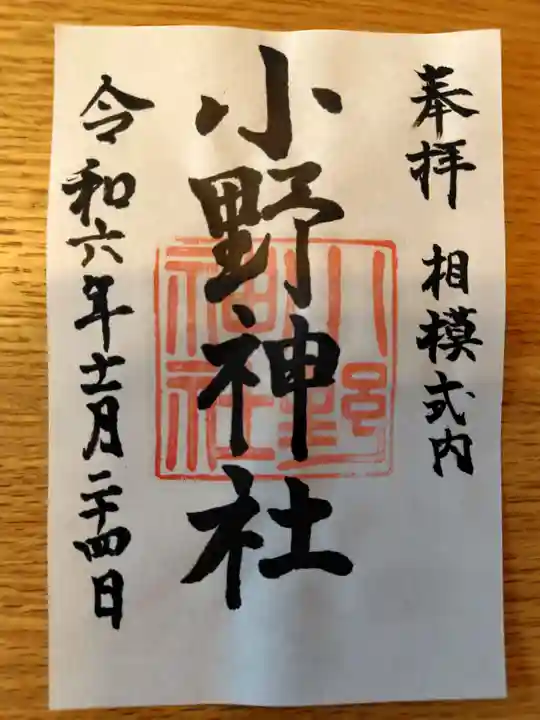 奉拝 相模式内
小野神社
小野
神社
令和六年十一月二十四日